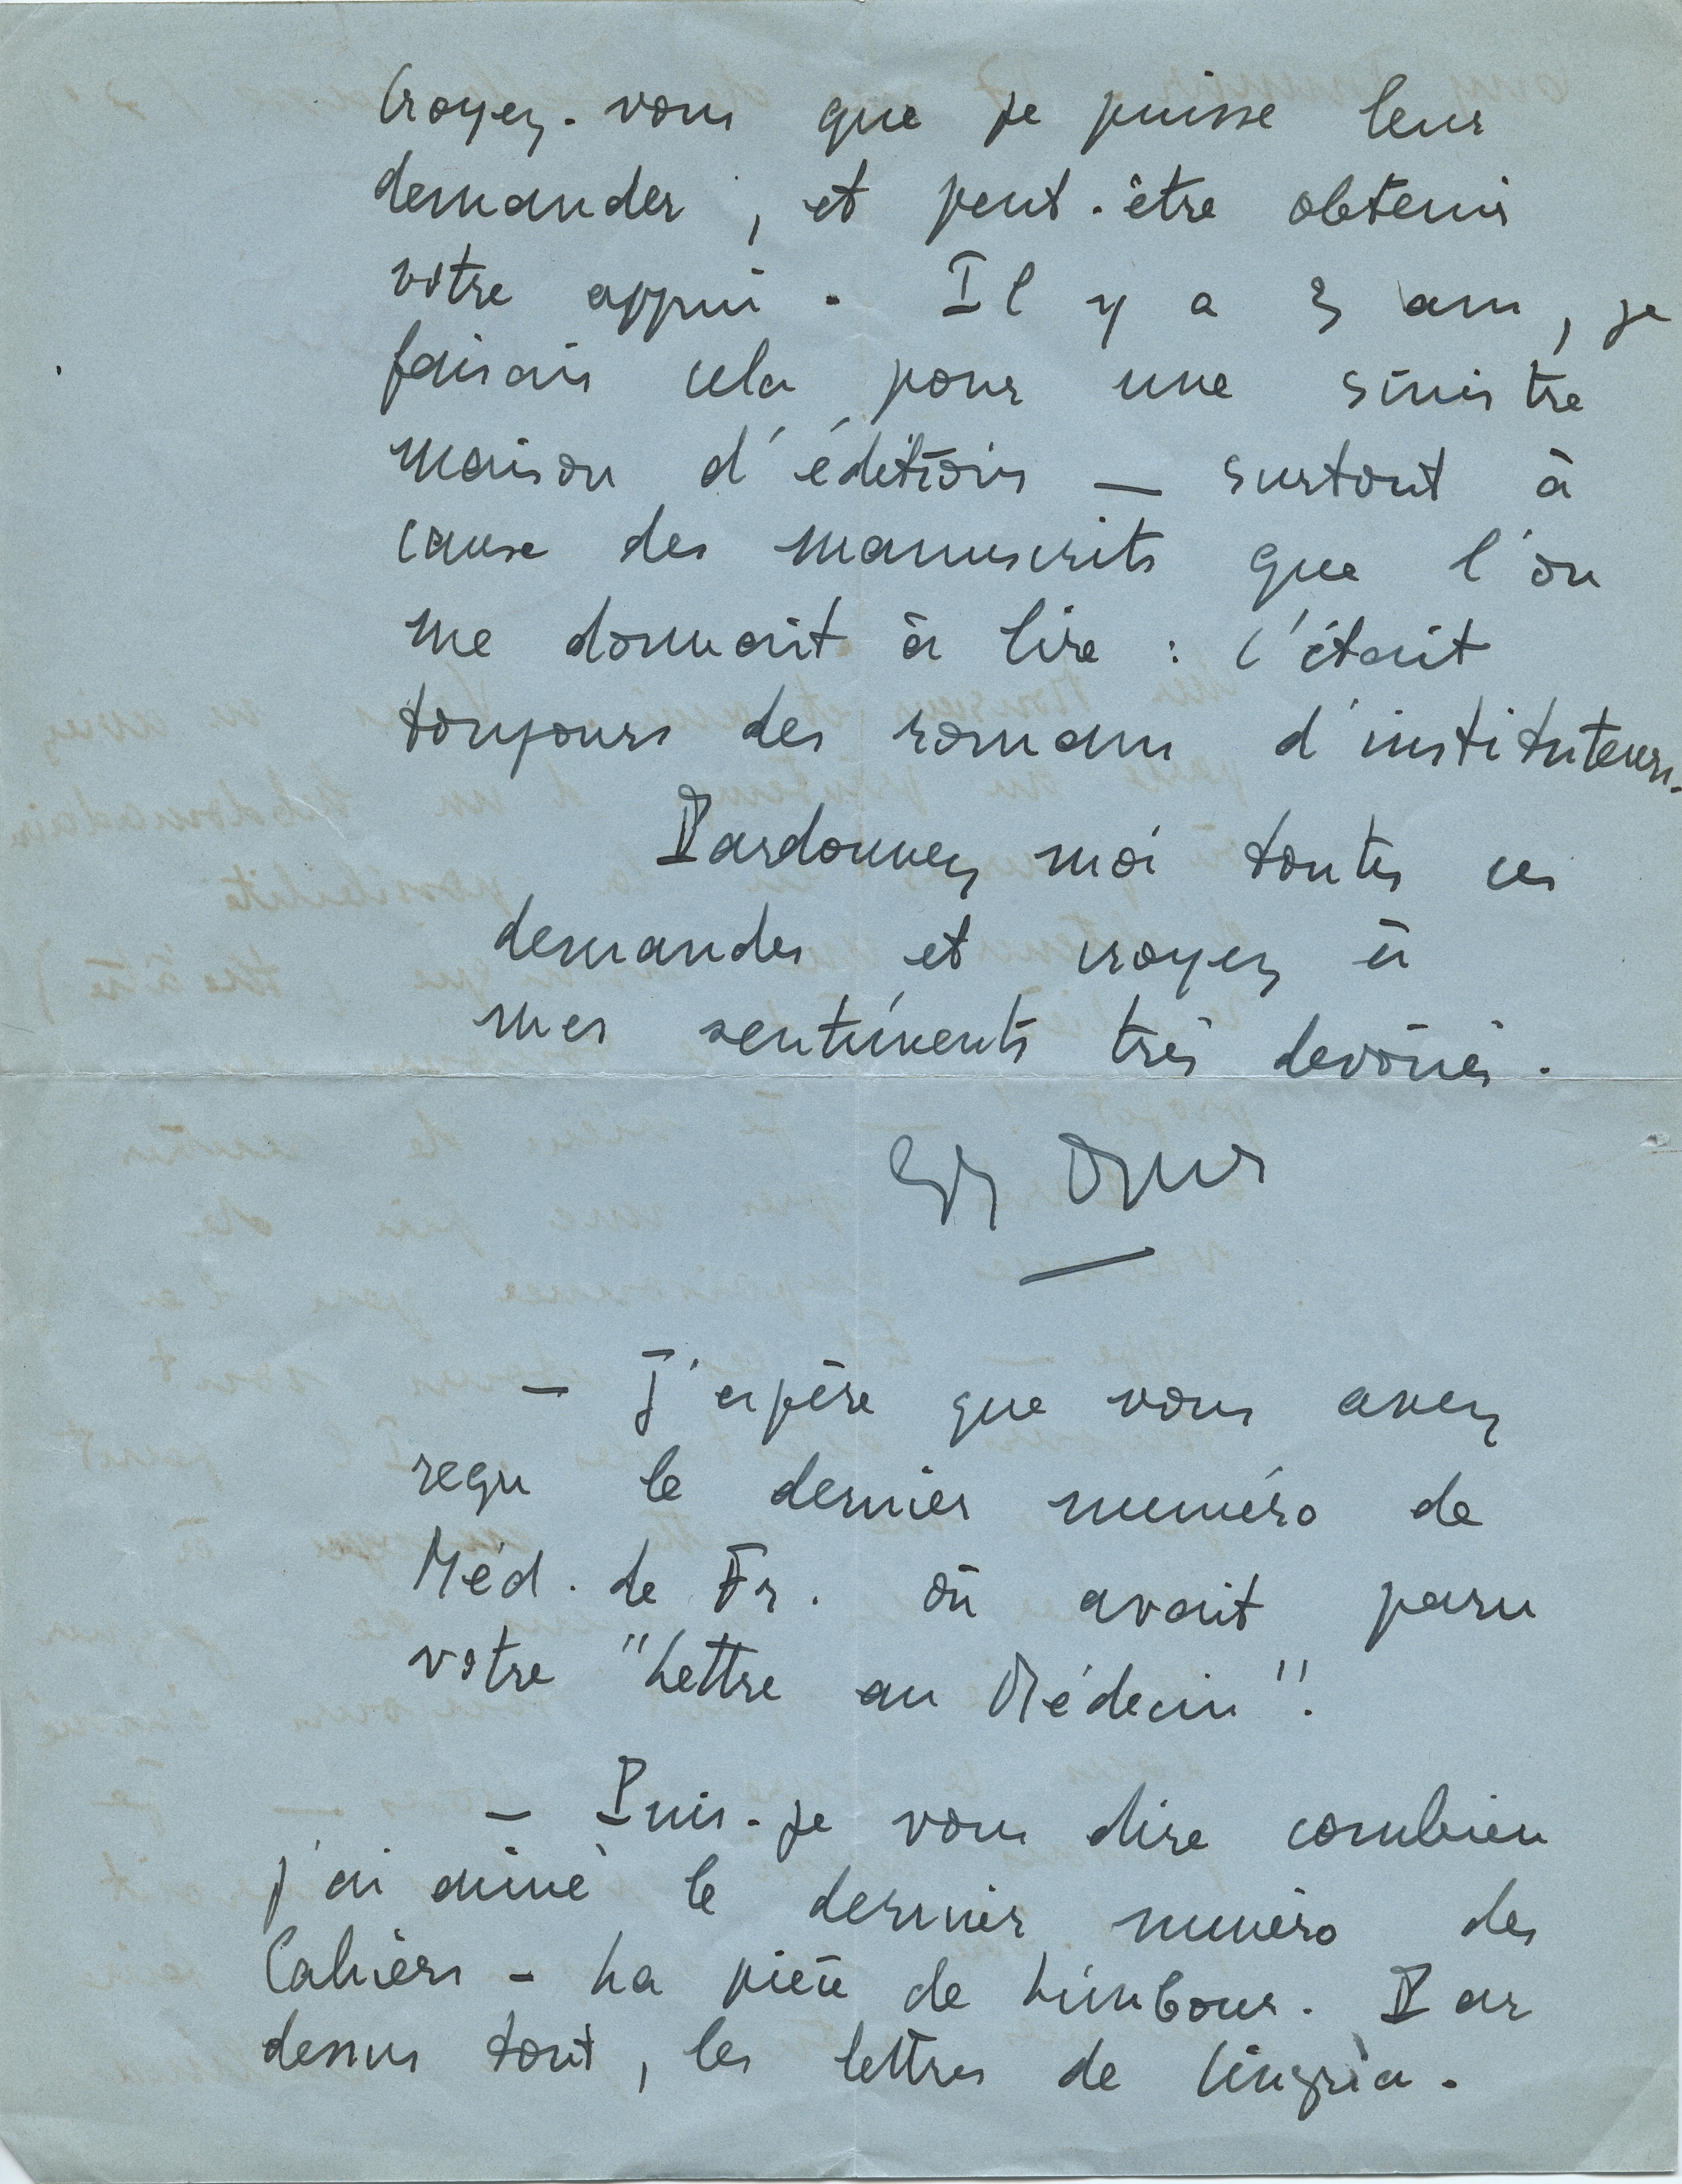 Croyez-vous que je puisse leur
demander, et peut-être obtenir
votre appui. Il y a 3 ans, je
faisais cela pour une sinistre
maison d'éditions — surtout à
cause des manuscrits que l'on
me donnait à lire : c'était
toujours des romans d'instituteurs.
Pardonnez moi toutes ces
demandes et croyez à
mes sentiments très dévoués.
— J'espère que vous avez
reçu le dernier numéro de
Méd. de Fr. où avait paru
votre "Lettre au Médecin".
— Puis-je vous dire combien
j'ai aimé le dernier numéro des
Cahiers - La pièce de Limbour. Par
dessus tout, les lettres de Cingria.